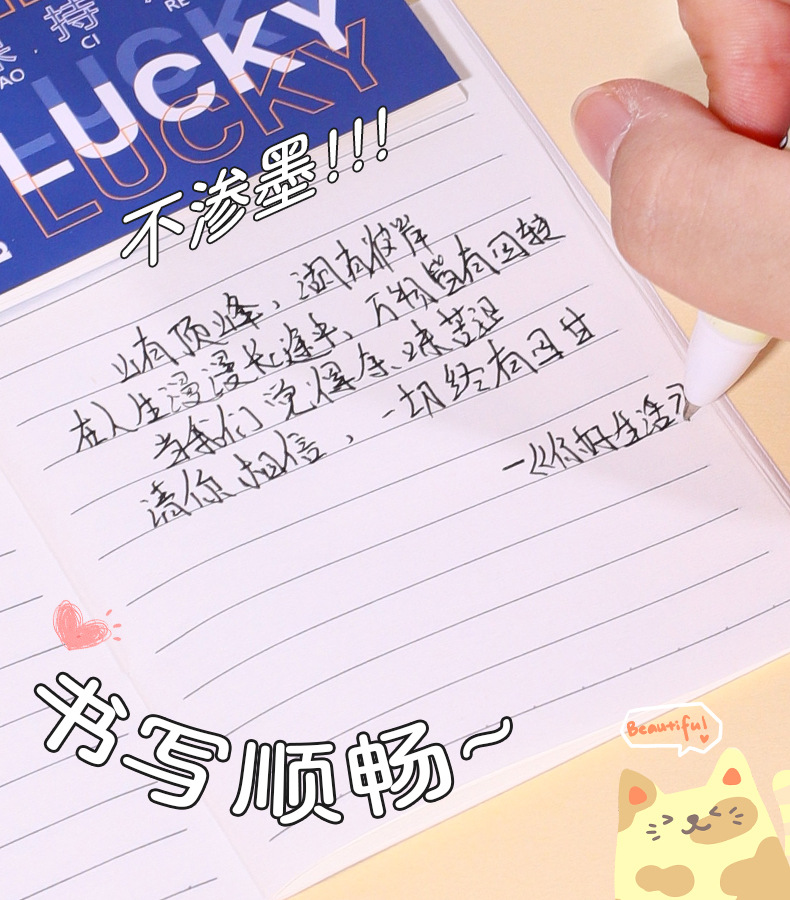 保持
AO
CI
RE
LUCKY
LUCKY
不渗墨!!!
山有顶峰、湖有彼岸
在人生漫漫长途中、万物皆有回转
当我们觉得余味苦涩
请你相信，一切终有回甘
—《你好生活》
书写顺畅~
Beautiful